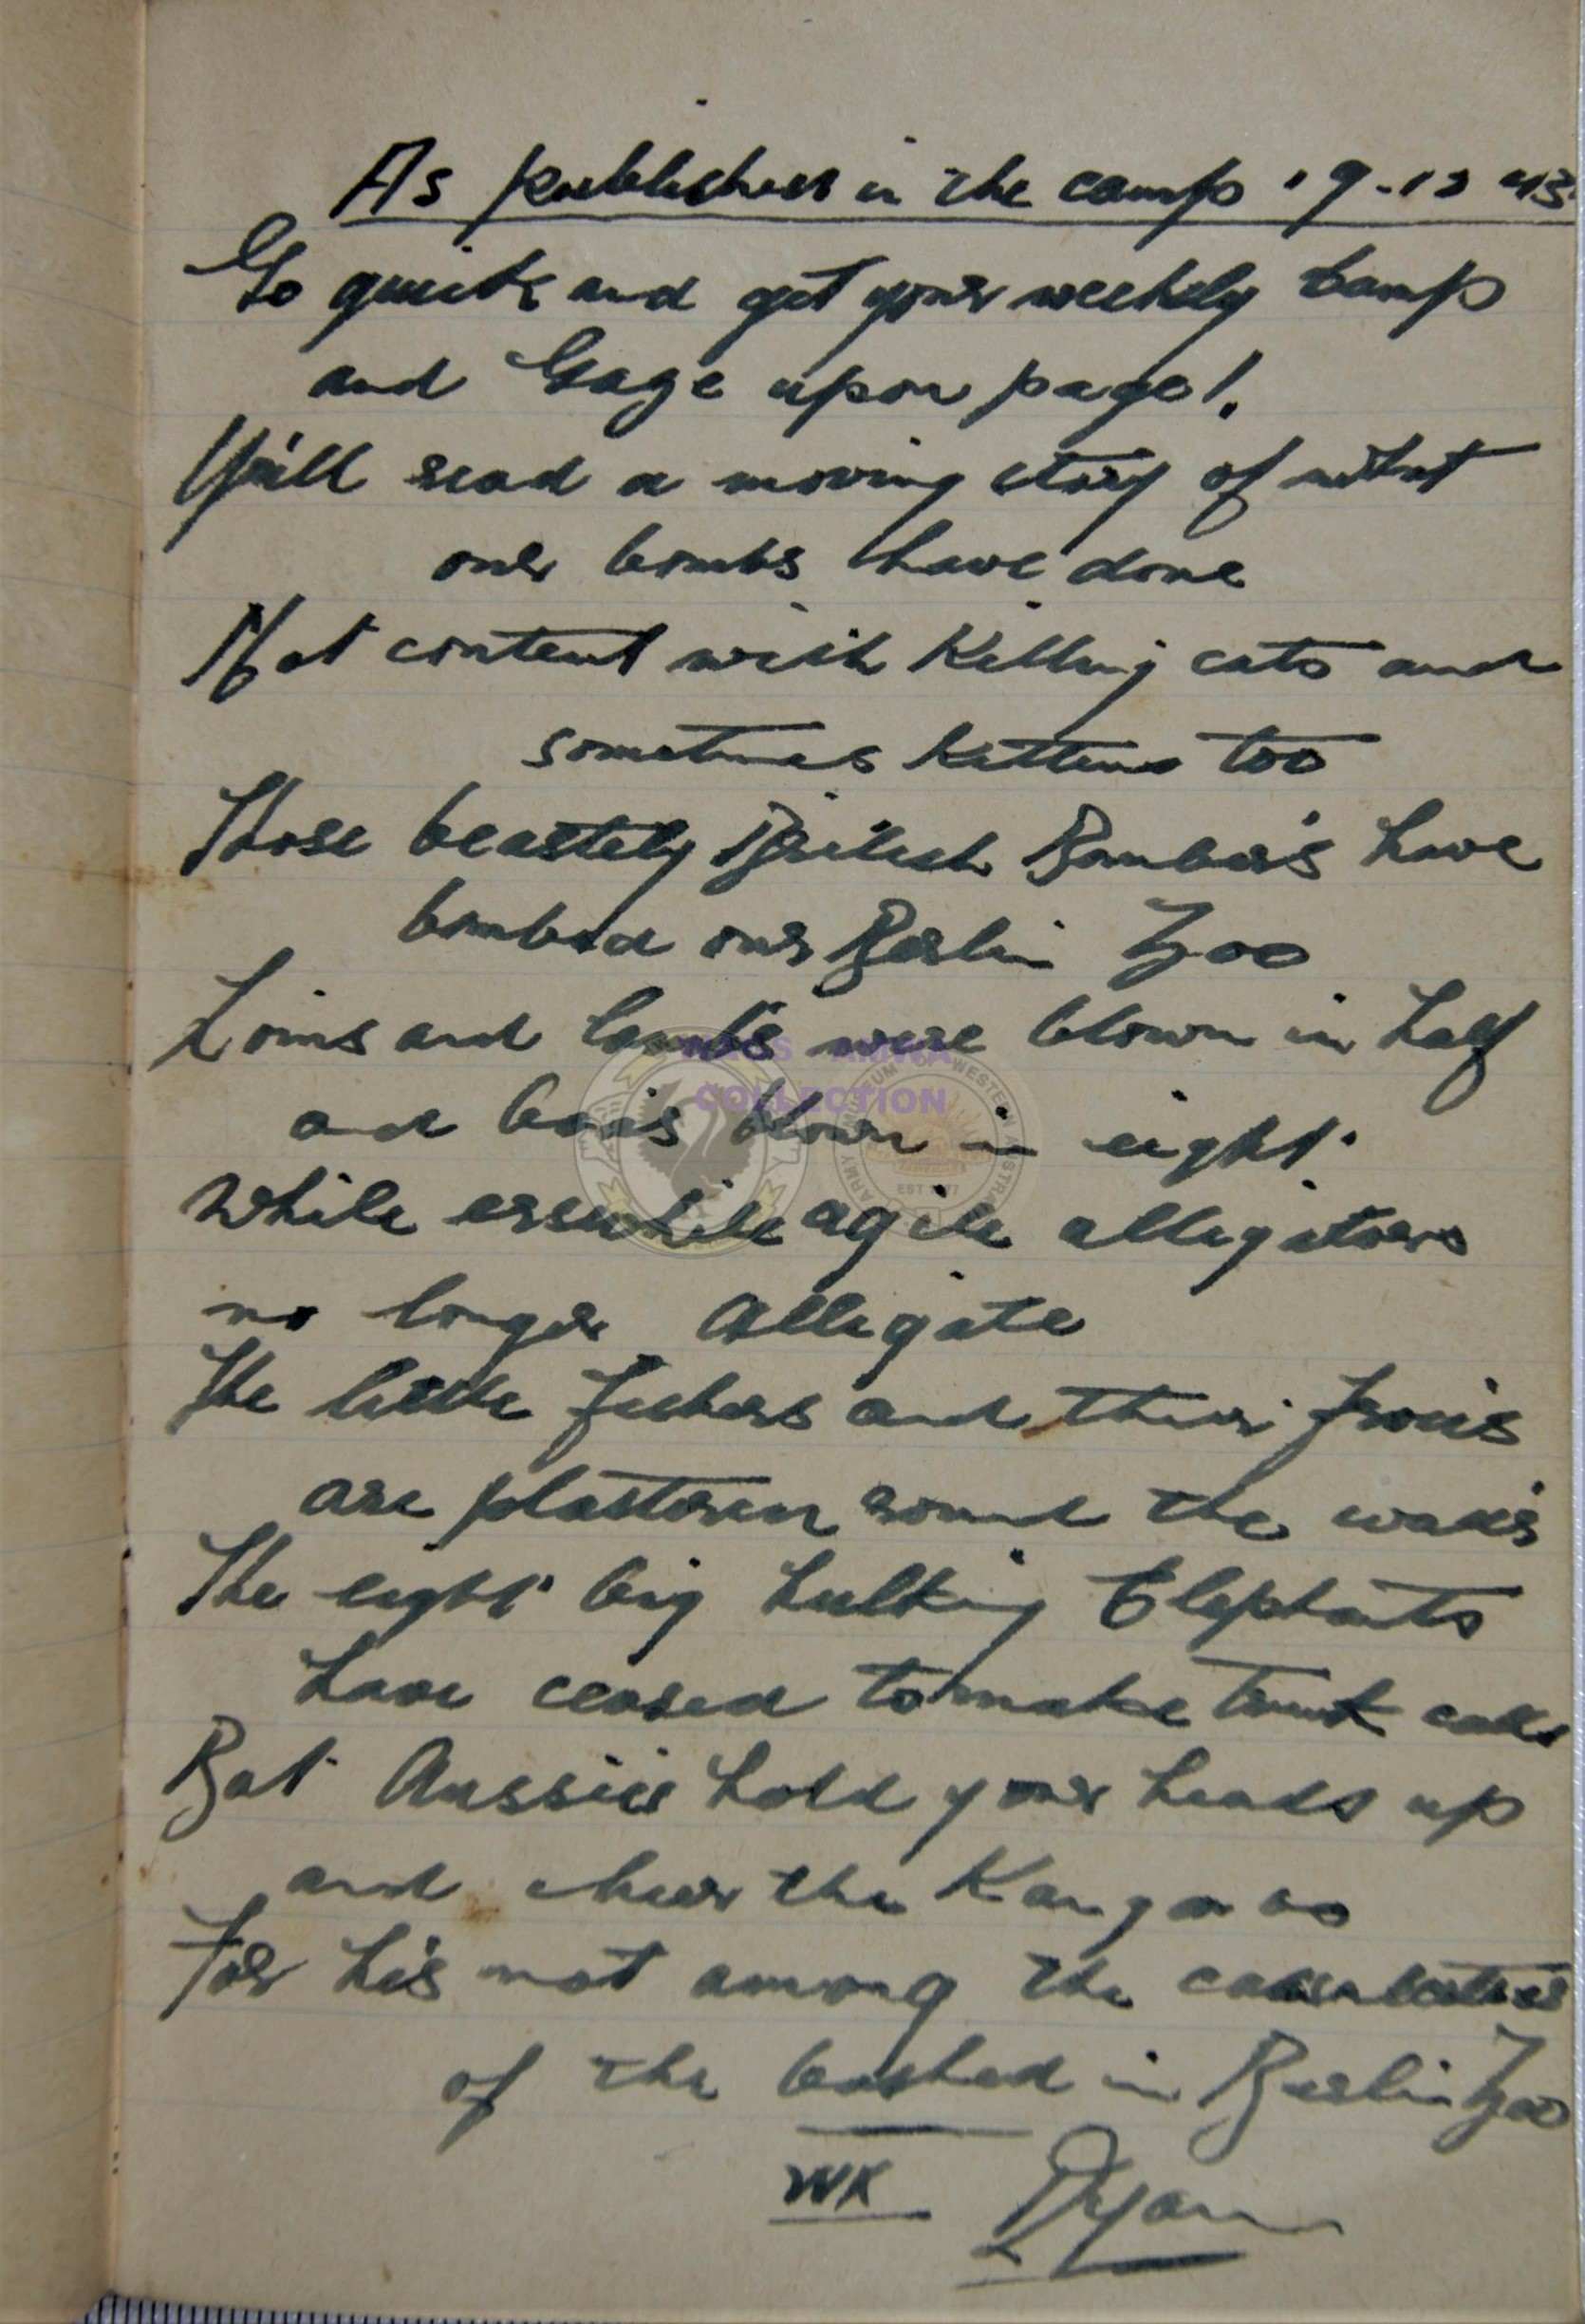 As published in the camp 19-12-43
Go quick and get your weekly camp
and Gaze upon page 1.
You'll read a moving story of what
our bombs have done
Not content with Killing cats and
sometimes Kittens too
Those beastely British Bomber's have
bombed our Berlin Zoo
Loins and lambs were blown in half
and boa's blown in eight
While erswhile agile alligators
no longer alligate
The little and their
are plastered round the walls
The eight big hulking Elephants
have ceased to make trunk calls
But Aussies hold your heads up
and cheer the Kangaroo
For his not among the casualties
of the bashed in Berlin Zoo
WK Ryan
COLLECTION
MUSEUM OF WESTERN AUSTRALIA
ARMY
EST 1977